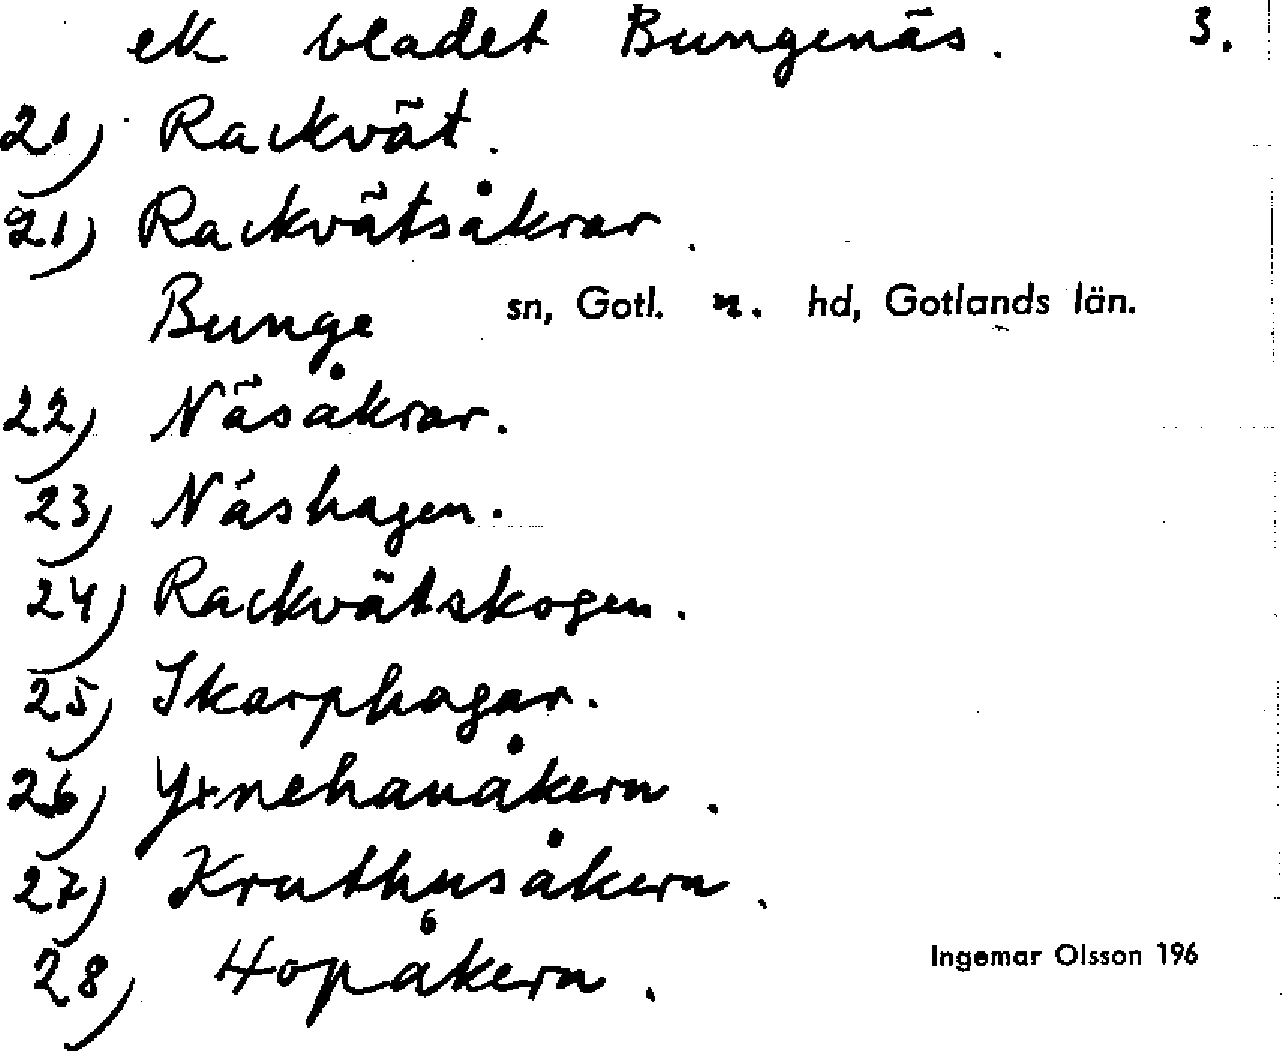 ek bladet Bungenäs. 3.
21) Rackvät.
21) Rackvätsåkrar.
Bunge sn, Gotl. n. hd, Gotlands län.
22) Näsåkrar.
23) Näshagen.
24) Rackvätskogen.
25) Skarphagar.
26) åkern.
27) Kruthusåkern.
28) Hopåkern.
Ingemar Olsson 196